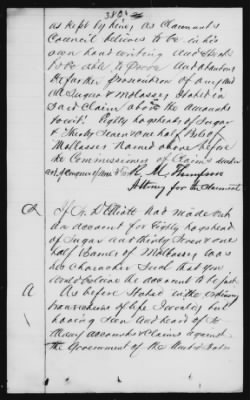 as kept by him, as Claimants
Council believes to be in his
own hand writing and
to be able to prove and abandons
further prosecution of any and
all Sugar & Molasses stated in
said Claim above the amounts
towit: Eighty hogsheads of Sugar
& Thirty Seven & one half Bbls of
Molasses Named above before
the Commissioners of Claims under
act of Congress of
M. Thompson
Attorny for the Claimant
Q If A. D'Elliott had made out
an account for Eighty hogshead
of Sugar and thirty Seven & one
half Barrels of Molasses was
his Character Such that you
would believe the account to be just
A As before Stated in the ordinary
transactions of life I would, but
having Seen and heard of so
Many accounts & Claims against
the Government of the United States